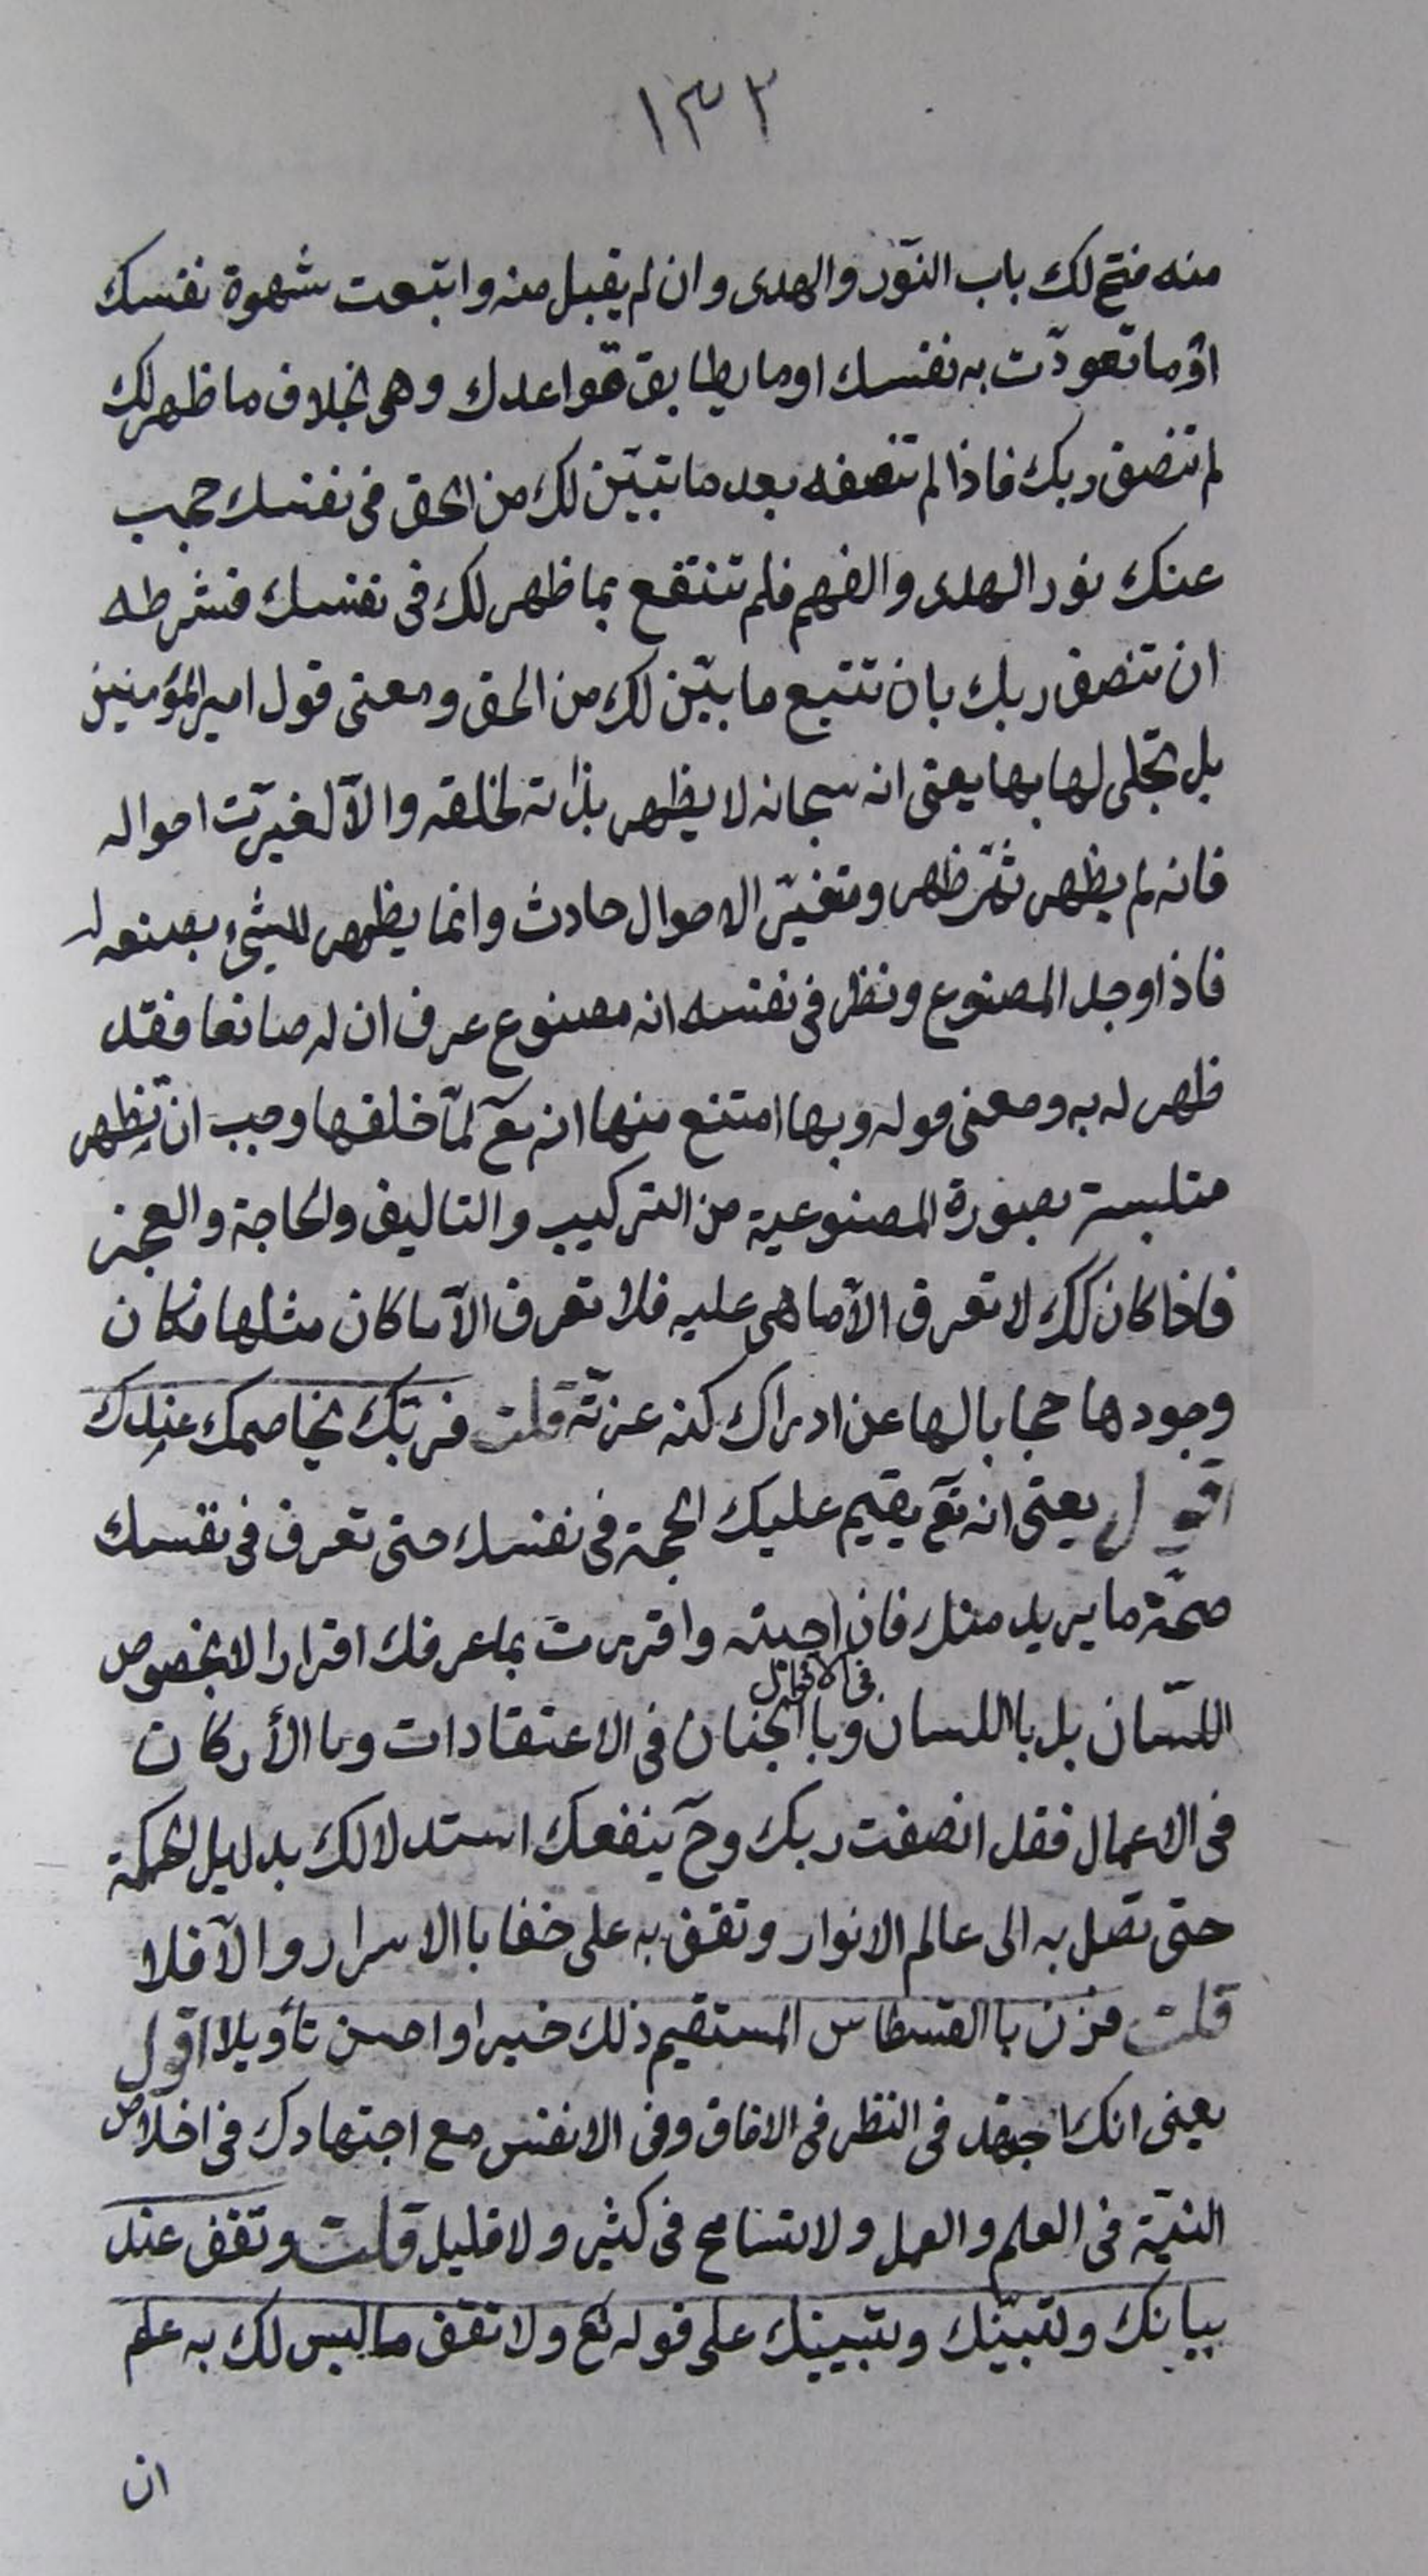 ١٣٢
منه فتح لك باب النّور والهدى وان لم يقبل منه واتبعت شهوة نفسك
اوما تعودّت به نفسك اوما يطابق قواعدك وهى بخلاف ما ظهر لك
لم تنصف ربك فاذا لم تنصفه بعد ما تبيّن لك من الحق فى نفسك حجب
عنك نور الهدى والفهم فلم تنتفع بما ظهر لك فى نفسك فشرطه
ان تنصف ربك بان تتبع ما بيّن لك من الحق ومعنى قول امير المؤمنين
بل تجلى لها بها يعنى انه سبحانه لا يظهر بذاته لخلقه والاّ لغيرّت احواله
فانه لم يظهر ثمّ ظهر ومتغيّر الاحوال حادث وانما يظهر للشئ بصنعه له
فاذا وجد المصنوع ونظر فى نفسه انه مصنوع عرف ان له صانعا فقد
ظهر له به ومعنى قوله وبها امتنع منها انه تع لمّا خلقها وجب ان تظهر
متلبسة بصورة المصنوعية من التركيب والتاليف والحاجة والعجز
فاذا كان كك لا تعرف الاّ ما هى عليه فلا تعرف الاّ ما كان مثلها فكان
وجودها حجابا لها عن ادراك كنه عزتّه قلت فربّك يخاصمك عندك
اقول يعنى انه تع يقيم عليك الحجة فى نفسك حتى تعرف فى نفسك
صحّة ما يريد منك فان اجبته واقررت بما عرفك اقرارا لا بخصوص
اللسّان بل باللسان فى الاقوال وباالجنان فى الاعتقادات وباالأركان
فى الاعمال فقد انصفت ربك وح ينفعك استدلالك بدليل الحكمة
حتى تصل به الى عالم الانوار وتقف به على خفايا الاسرار والاّ فلا
قلت فزن باالقسطاس المستقيم ذلك خير او احسن تأويلا اقول
يعنى انك تجتهد فى النظر فى الافاق وفى الانفس مع اجتهادك فى اخلاص
النيّة فى العلم والعمل ولا تسامح فى كثير ولا قليل قلت وتقف عند
بيانك وتبيّنك وتبيينك على قوله تع ولا تقف ما ليس لك به علم
ان